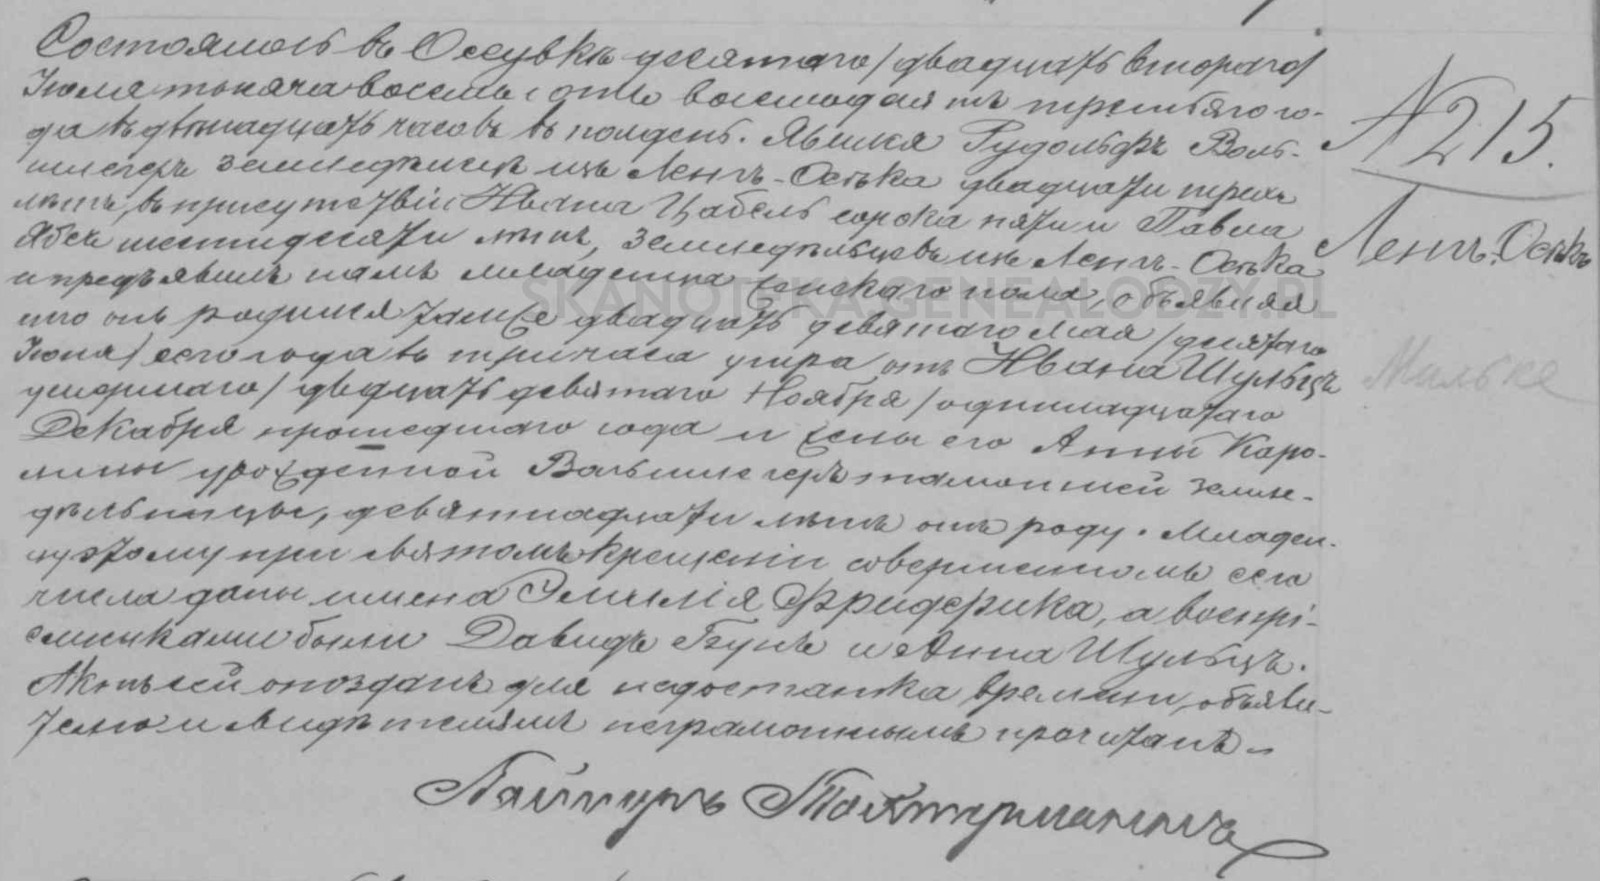 Состоялось въ Оссувкѣ десятаго /двадцать втораго/
Іюля тысяча восемь сотъ восемьдесятъ третьяго го-
да въ двѣнадцать часовъ въ полдень. Явился Рудольфъ Воль-
шлегеръ земледѣлецъ изъ Ленгъ-Оська двадцати трехъ
лѣтъ, въ присутствіи Ивана Цабель сорока пяти и Павла
шестидесяти лѣтъ, земледѣльцевъ изъ Ленгъ-Оська
и предъявилъ намъ младенца женскаго пола, объявляя
что онъ родился тамже двадцать девятаго Мая /десятаго
Іюня/ сего года въ три часа утра отъ Ивана Шульцъ
умершаго /двадцать девятаго Ноября /одиннадцатаго
Декабря прошедшаго года и жены его Анны Каро-
лины урожденной Вольшлегеръ тамошней земле-
дѣльницы, девятнадцати лѣтъ отъ роду. Младен-
цу этому при святомъ крещеніи совершенномъ сего
числа даны имена Эмилія Фридерика, а воспрі-
емниками были Давидъ и Анна Шульцъ.
Актъ сей опозданъ для недостатка времени, объяви-
телю и свидѣтелямъ неграмотнымъ прочитанъ
№ 215.
Ленгъ-Оськъ
Мильке
SKANOTEKA.GENEALODZY.PL